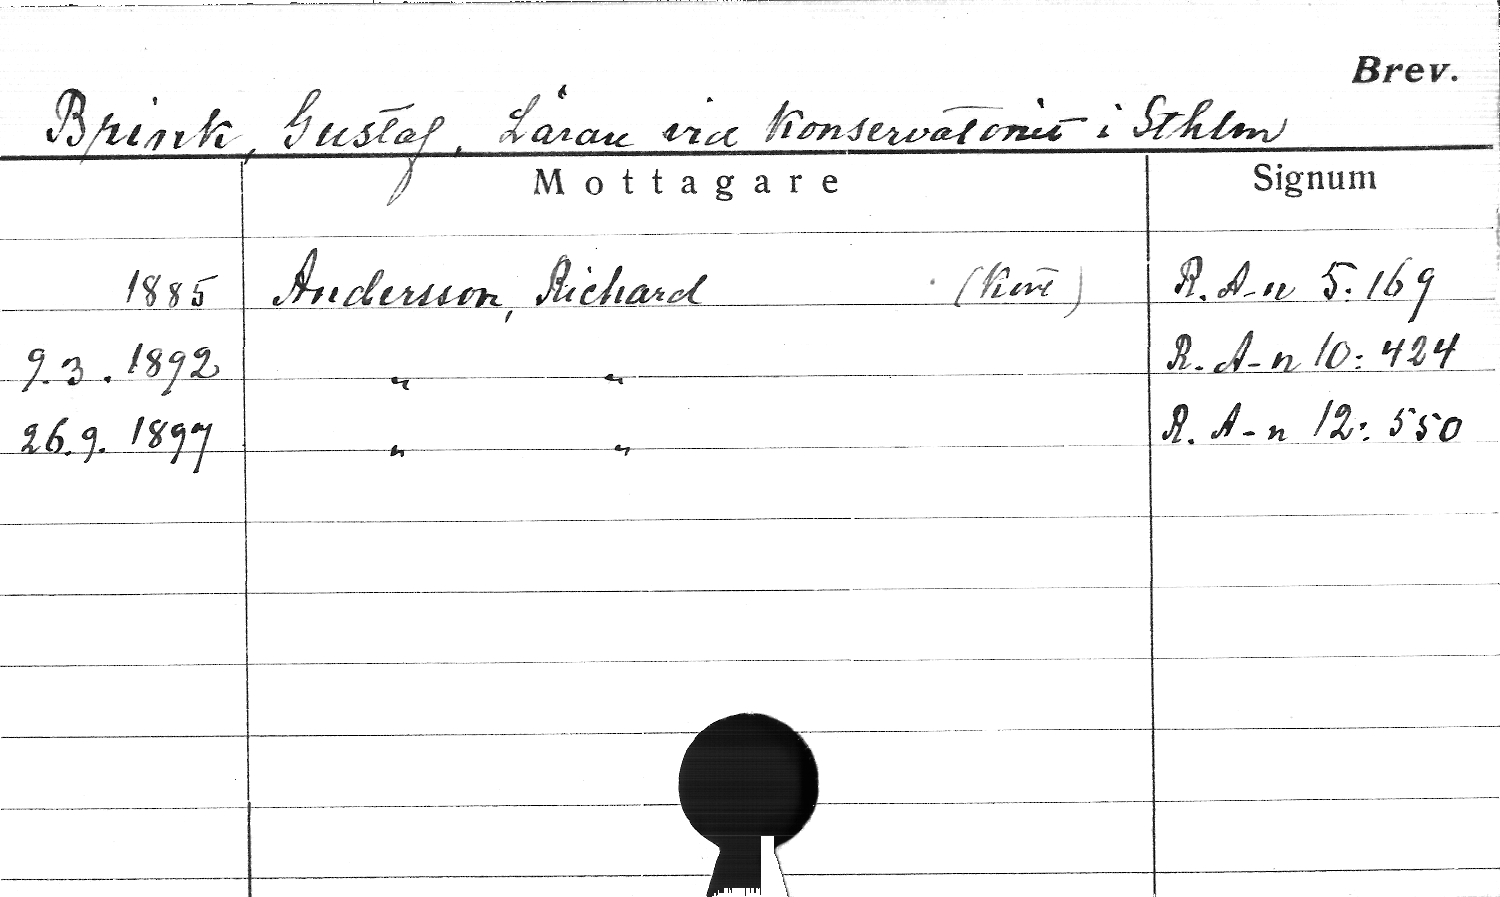 Brev.
Brink, Gustaf. Lärare vid Konservatoriet i Sthlm
Mottagare Signum
1885 Andersson, Richard (Kuvert) R. A-n 5:169
9.3.1892 " " R. A-n 10:424
26.9.1897 " " R. A-n 12:550